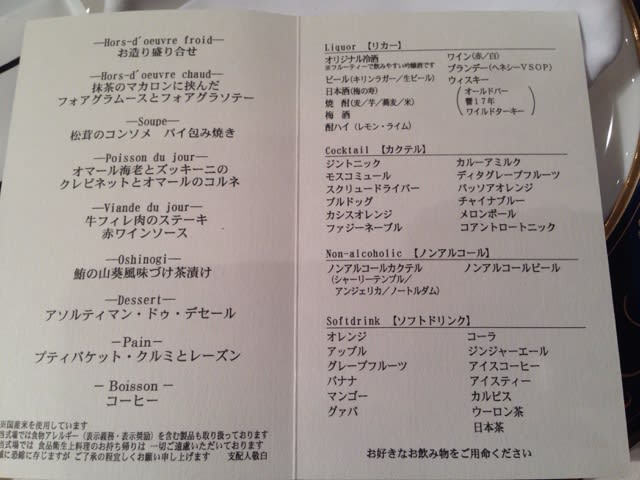 ―Hors-d'oeuvre froid―
お造り盛り合せ
―Hors-d'oeuvre chaud―
抹茶のマカロンに挟んだ
フォアグラムースとフォアグラソテー
―Soupe―
松茸のコンソメ パイ包み焼き
―Poisson du jour―
オマール海老とズッキーニの
クレピネットとオマールのコルネ
―Viande du jour―
牛フィレ肉のステーキ
赤ワインソース
―Oshinogi―
鮪の山葵風味づけ茶漬け
―Dessert―
アソルティマン・ドゥ・デセール
―Pain―
プティバケット・クルミとレーズン
― Boisson ―
コーヒー
※国産米を使用しています
当式場では食物アレルギー（表示義務・表示奨励）を含む製品も取り扱っております
当式場では 食品衛生上料理のお持ち帰りは 一切ご遠慮いただいております
誠に恐縮に存じますが ご了承の程宜しくお願い申し上げます 支配人敬白
Liquor 【リカー】
オリジナル冷酒
※フルーティーで飲みやすい吟醸酒です
ビール(キリンラガー/生ビール)
日本酒(梅の寿)
焼 酎(麦/芋/蕎麦/米)
梅 酒
酎ハイ (レモン・ライム)
ワイン(赤/白)
ブランデー(ヘネシーVSOP)
ウィスキー
オールドパー
響17年
ワイルドターキー
Cocktail 【カクテル】
ジントニック
モスコミュール
スクリュードライバー
ブルドッグ
カシスオレンジ
ファジーネーブル
カルーアミルク
ディタグレープフルーツ
パッソアオレンジ
チャイナブルー
メロンボール
コアントロートニック
Non-alcoholic 【ノンアルコール】
ノンアルコールカクテル
(シャーリーテンプル/
アンジェリカ/ノートルダム)
ノンアルコールビール
Softdrink 【ソフトドリンク】
オレンジ
アップル
グレープフルーツ
バナナ
マンゴー
グァバ
コーラ
ジンジャーエール
アイスコーヒー
アイスティー
カルピス
ウーロン茶
日本茶
お好きなお飲み物をご用命ください